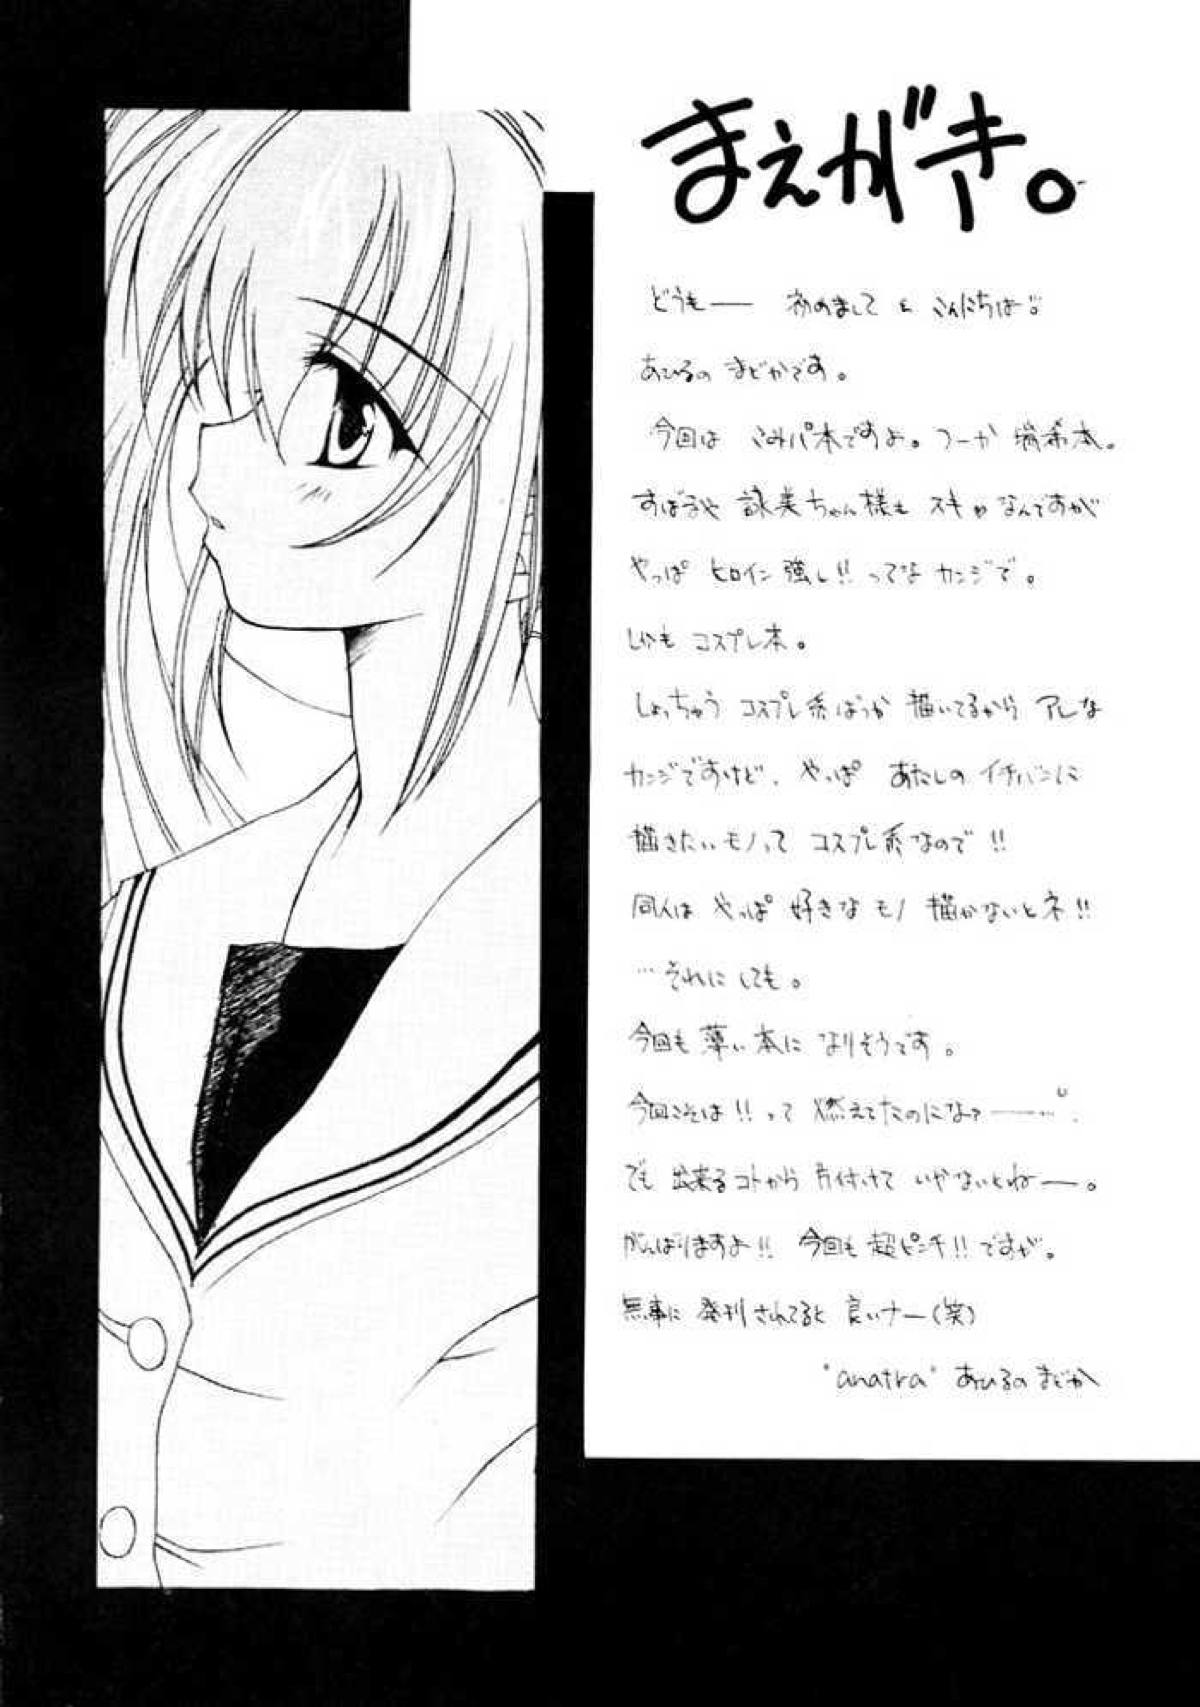 まえがき。
どうもー 初めまして & こんにちは。
あひるの まどかです。
今回は こみパ本ですよ。つーか 瑞希本。
すばるや 詠美ちゃん様も スキめ なんですが
やっぱ ヒロイン 強し!! ってな カンジで。
しかも コスプレ本。
しょっちゅう コスプレ系ばっか 描いてるから アレな
カンジですけど、やっぱ あたしの イチバンに
描きたいモノって コスプレ系なので!!
同人は やっぱ 好きな モノ 描かないとネ!!
…それにしても。
今回も 薄い 本に なりそうです。
今回こそは!! って 燃えてたのになァー…。
でも 出来るコトから 片付けて いかないとねー。
がんばりますよ!! 今回も 超ピンチ!! ですが。
無事に 発刊されてると 良いナー(笑)
"anatra" あひるの まどか